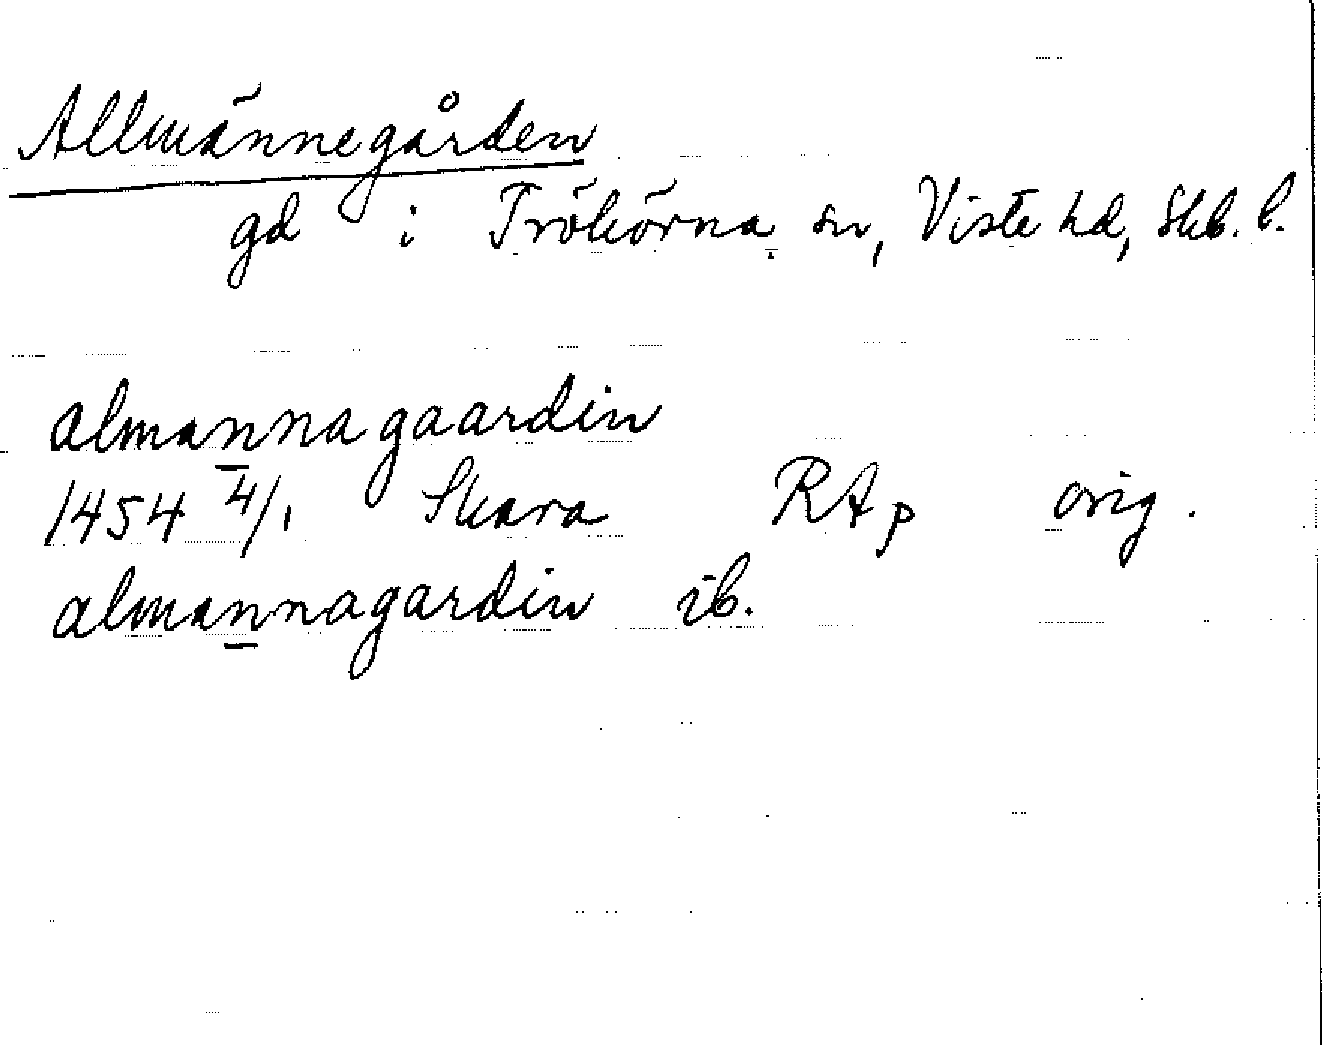 Allmännegården
gd i Trökörna sn, Viste hd, Skb. l.
almannagaardin
1454 4/1 Skara RAp orig.
almannagardin ib.